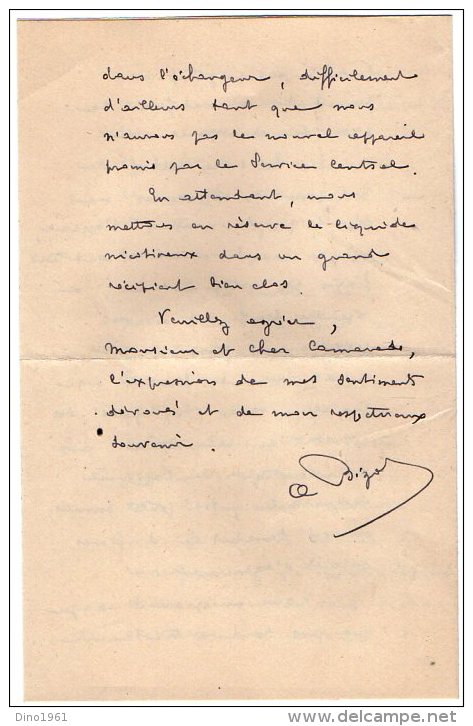 dans l'échangeur, difficilement
d'ailleurs tant que nous
n'aurons pas le nouvel appareil
promis par le Service Central.
En attendant, nous
mettons en réserve le liquide
nicotineux dans un grand
récipient bien clos.
Veuillez agréer,
Monsieur et cher Camarade,
l'expression de mes sentiments
dévoués et de mon respectueux
souvenir.
Dino1961
delcampe.net